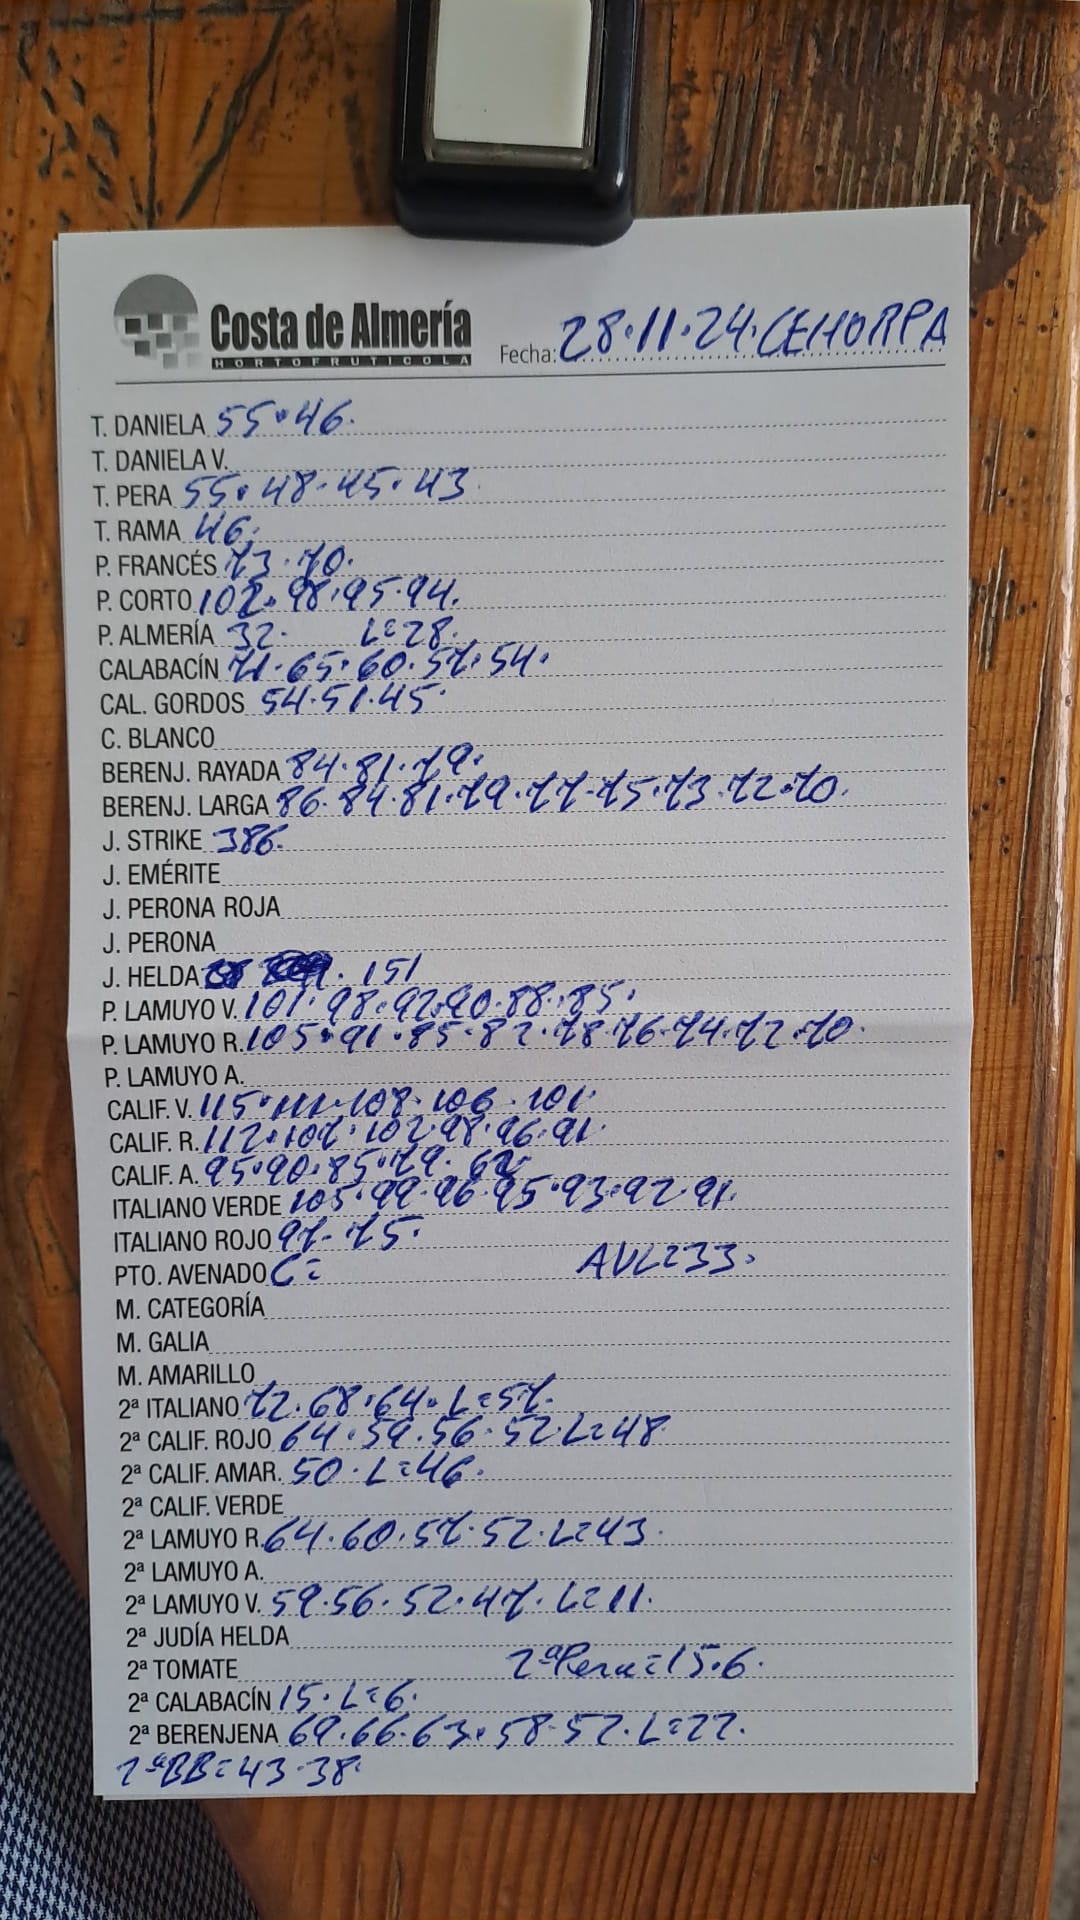 Costa de Almería
HORTOFRUTICOLA
Fecha: 28.11.24. CEHORPA
T. DANIELA 55.46.
T. DANIELA V.
T. PERA 55.48.45.43
T. RAMA 46.
P. FRANCÉS 73.70.
P. CORTO 102.98.95.94.
P. ALMERÍA 32. L=28.
CALABACÍN 71.65.60.57.54.
CAL. GORDOS 54.51.45.
C. BLANCO
BERENJ. RAYADA 84.81.79.
BERENJ. LARGA 86.84.81.79.77.75.73.72.70.
J. STRIKE 386.
J. EMÉRITE
J. PERONA ROJA
J. PERONA
J. HELDA . 151
P. LAMUYO V. 101.98.92.90.88.85.
P. LAMUYO R. 105.91.85.82.78.76.74.72.70.
P. LAMUYO A.
CALIF. V. 115.111.108.106.101.
CALIF. R. 112.107.102.98.96.91.
CALIF. A. 95.90.85.79.
ITALIANO VERDE 105.99.96.95.93.92.91.
ITALIANO ROJO 97.75.
PTO. AVENADO C= AVL=33.
M. CATEGORÍA
M. GALIA
M. AMARILLO
2ª ITALIANO 72.68.64. L=57.
2ª CALIF. ROJO 64.59.56.52.L=48
2ª CALIF. AMAR. 50.L=46.
2ª CALIF. VERDE
2ª LAMUYO R. 64.60.57.52.L=43.
2ª LAMUYO A.
2ª LAMUYO V. 59.56.52.47.L=11.
2ª JUDÍA HELDA
2ª TOMATE 2ªPera=15.6.
2ª CALABACÍN 15.L=6.
2ª BERENJENA 69.66.63.58.52.L=22.
2ªBB=43.38.